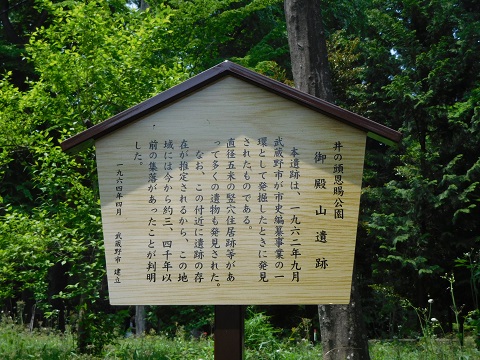 井の頭恩賜公園
御殿山遺跡
本遺跡は、一九六二年九月
武蔵野市が市史編纂事業の一
環として発掘したときに発見
されたものである。
直径五米の竪穴住居跡等があ
って多くの遺物も発見された。
なお、この付近に遺跡の存
在が推定されるから、この地
域には今から約三、四千年以
前の集落があったことが判明
した。
一九六四年四月
武蔵野市 建立